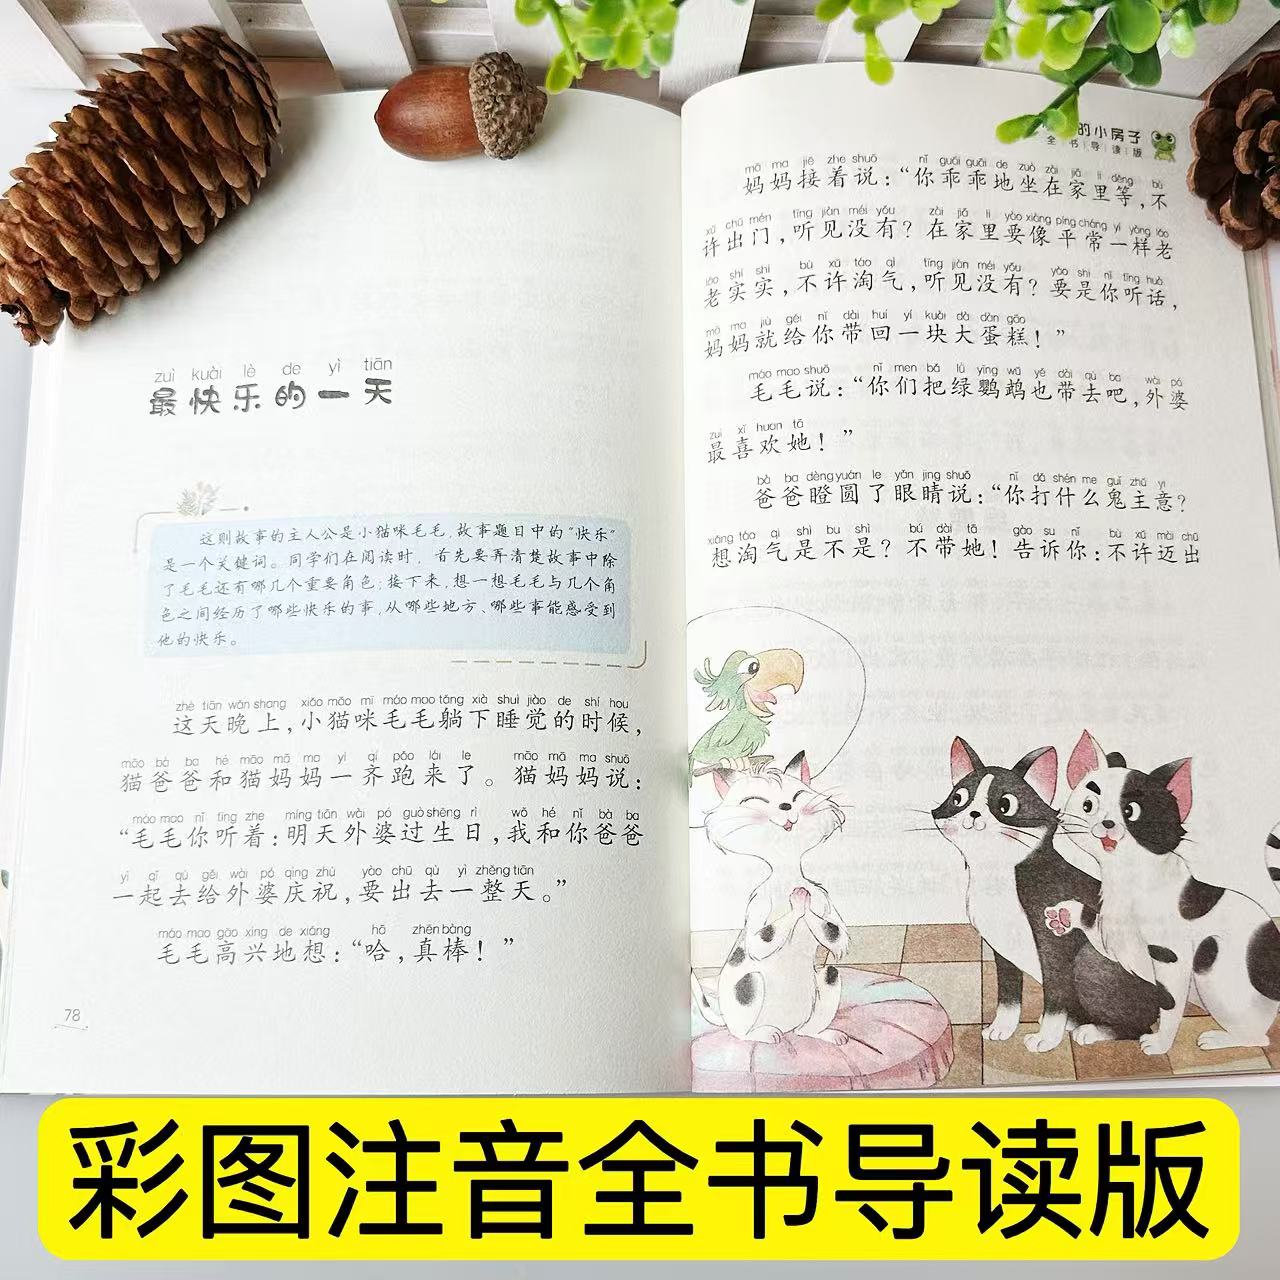 zuì kuài lè de yì tiān
最快乐的一天
这则故事的主人公是小猫咪毛毛,故事题目中的“快乐”
是一个关键词。同学们在阅读时,首先要弄清楚故事中除
了毛毛还有哪几个重要角色;接下来,想一想毛毛与几个角
色之间经历了哪些快乐的事,从哪些地方、哪些事能感受到
他的快乐。
zhè tiān wǎn shang xiǎo māo mī máo mao tǎng xià shuì jiào de shí hou
这天晚上,小猫咪毛毛躺下睡觉的时候,
māo bà ba hé māo mā ma yì qí pǎo lái le māo mā ma shuō
猫爸爸和猫妈妈一齐跑来了。猫妈妈说:
máo mao nǐ tīng zhe míng tiān wài pó guò shēng rì wǒ hé nǐ bà ba
“毛毛你听着:明天外婆过生日,我和你爸爸
yì qǐ qù gěi wài pó qìng zhù yào chū qù yì zhěng tiān
一起去给外婆庆祝,要出去一整天。”
máo mao gāo xìng de xiǎng hā zhēn bàng
毛毛高兴地想:“哈,真棒!”
78
的小房子
全书导读版
mā ma jiē zhe shuō nǐ guāi guāi de zuò zài jiā li děng bù
妈妈接着说:“你乖乖地坐在家里等,不
xǔ chū mén tīng jiàn méi yǒu zài jiā li yào xiàng píng cháng yí yàng lǎo
许出门,听见没有?在家里要像平常一样老
lǎo shí shí bù xǔ táo qì tīng jiàn méi yǒu yào shi nǐ tīng huà
老实实,不许淘气,听见没有?要是你听话,
mā ma jiù gěi nǐ dài huí yí kuài dà dàn gāo
妈妈就给你带回一块大蛋糕!”
máo mao shuō nǐ men bǎ lǜ yīng wǔ yě dài qù ba wài pó
毛毛说:“你们把绿鹦鹉也带去吧,外婆
zuì xǐ huan tā
最喜欢她!”
bà ba dèng yuán le yǎn jing shuō nǐ dǎ shén me guǐ zhǔ yi
爸爸瞪圆了眼睛说:“你打什么鬼主意?
xiǎng táo qì shì bu shì bú dài tā gào su nǐ bù xǔ mài chū
想淘气是不是?不带她!告诉你:不许迈出
彩图注音全书导读版